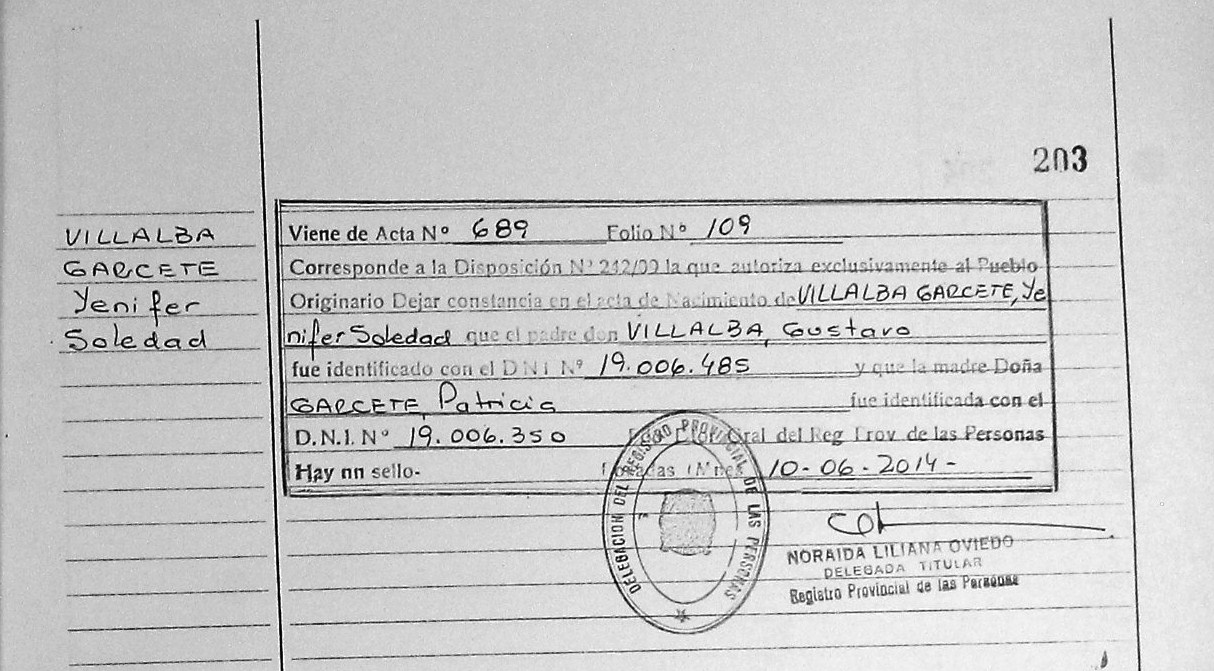 203
VILLALBA
GARCETE
Yenifer
Soledad
Viene de Acta Nº 689 Folio Nº 109
Corresponde a la Disposición Nº 242/09 la que autoriza exclusivamente al Pueblo
Originario Dejar constancia en el acta de Nacimiento de VILLALBA GARCETE, Ye
nifer Soledad que el padre don VILLALBA, Gustavo
fue identificado con el D N I Nº 19.006.485 y que la madre Doña
GARCETE, Patricia fue identificada con el
D.N.I. Nº 19.006.350 Gral del Reg Prov de las Personas
Hay nn sello- Posadas (Mnes 10-06-2014-
DELEGACION DEL REGISTRO PROVINCIAL DE LAS PERSONAS
NORAIDA LILIANA OVIEDO
DELEGADA TITULAR
Registro Provincial de las Personas